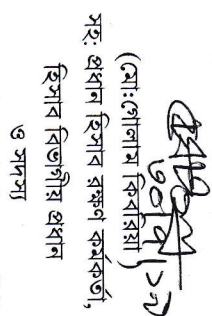 (মো: গোলাম কিবরিয়া)
সহ: প্রধান হিসাব রক্ষণ কর্মকর্তা,
হিসাব বিভাগীয় প্রধান
ও সদস্য